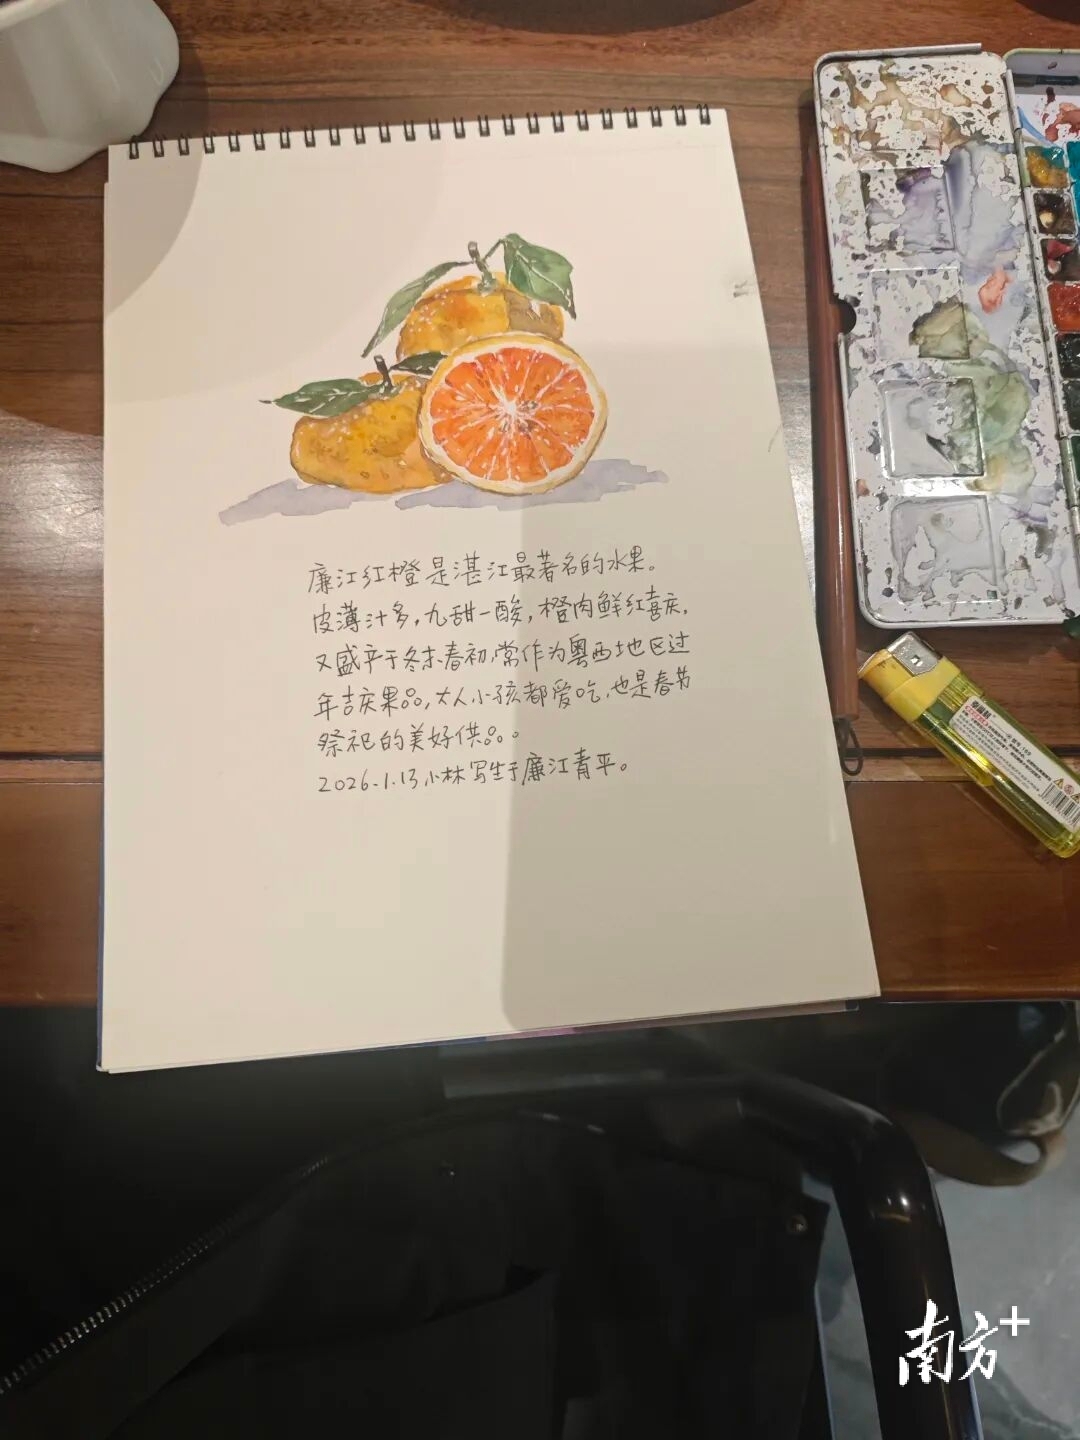 廉江红橙是湛江最著名的水果。
皮薄汁多，九甜一酸，橙肉鲜红喜庆，
又盛产于冬末春初，常作为粤西地区过
年吉庆果品，大人小孩都爱吃，也是春节
祭祀的美好供品。
2026.1.13小林写生于廉江青平。
南方+